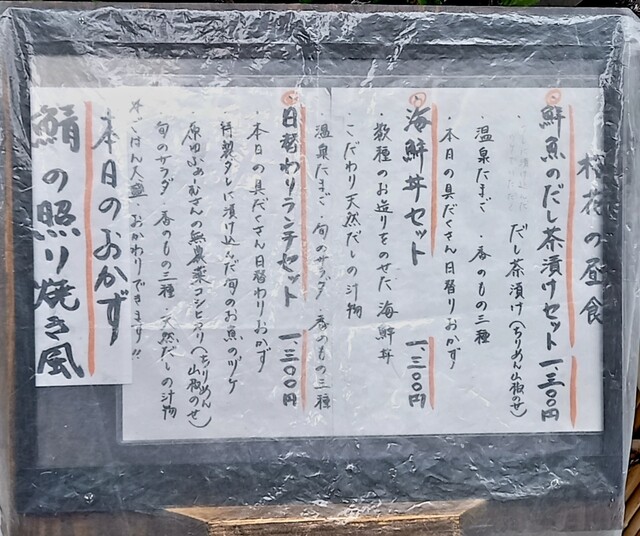 桜花の昼食
鮮魚のだし茶漬けセット 一、三〇〇円
だし茶漬け(ちりめん山椒のせ)
・温泉たまご ・香のもの三種
・本日の具だくさん日替りおかず
海鮮丼セット 一、三〇〇円
・数種のお造りをのせた海鮮丼
・こだわり天然だしの汁物
・温泉たまご・旬のサラダ・香のもの三種
日替わりランチセット 一、三〇〇円
・本日の具だくさん日替わりおかず
・特製タレに漬け込んだ旬のお魚のヅケ
・原ゆふぁーむさんの無農薬コシヒカリ(ちりめん山椒のせ)
・旬のサラダ・香のもの三種・天然だしの汁物
※ごはん大盛・おかわりできます!!
本日のおかず
鯖の照り焼き風